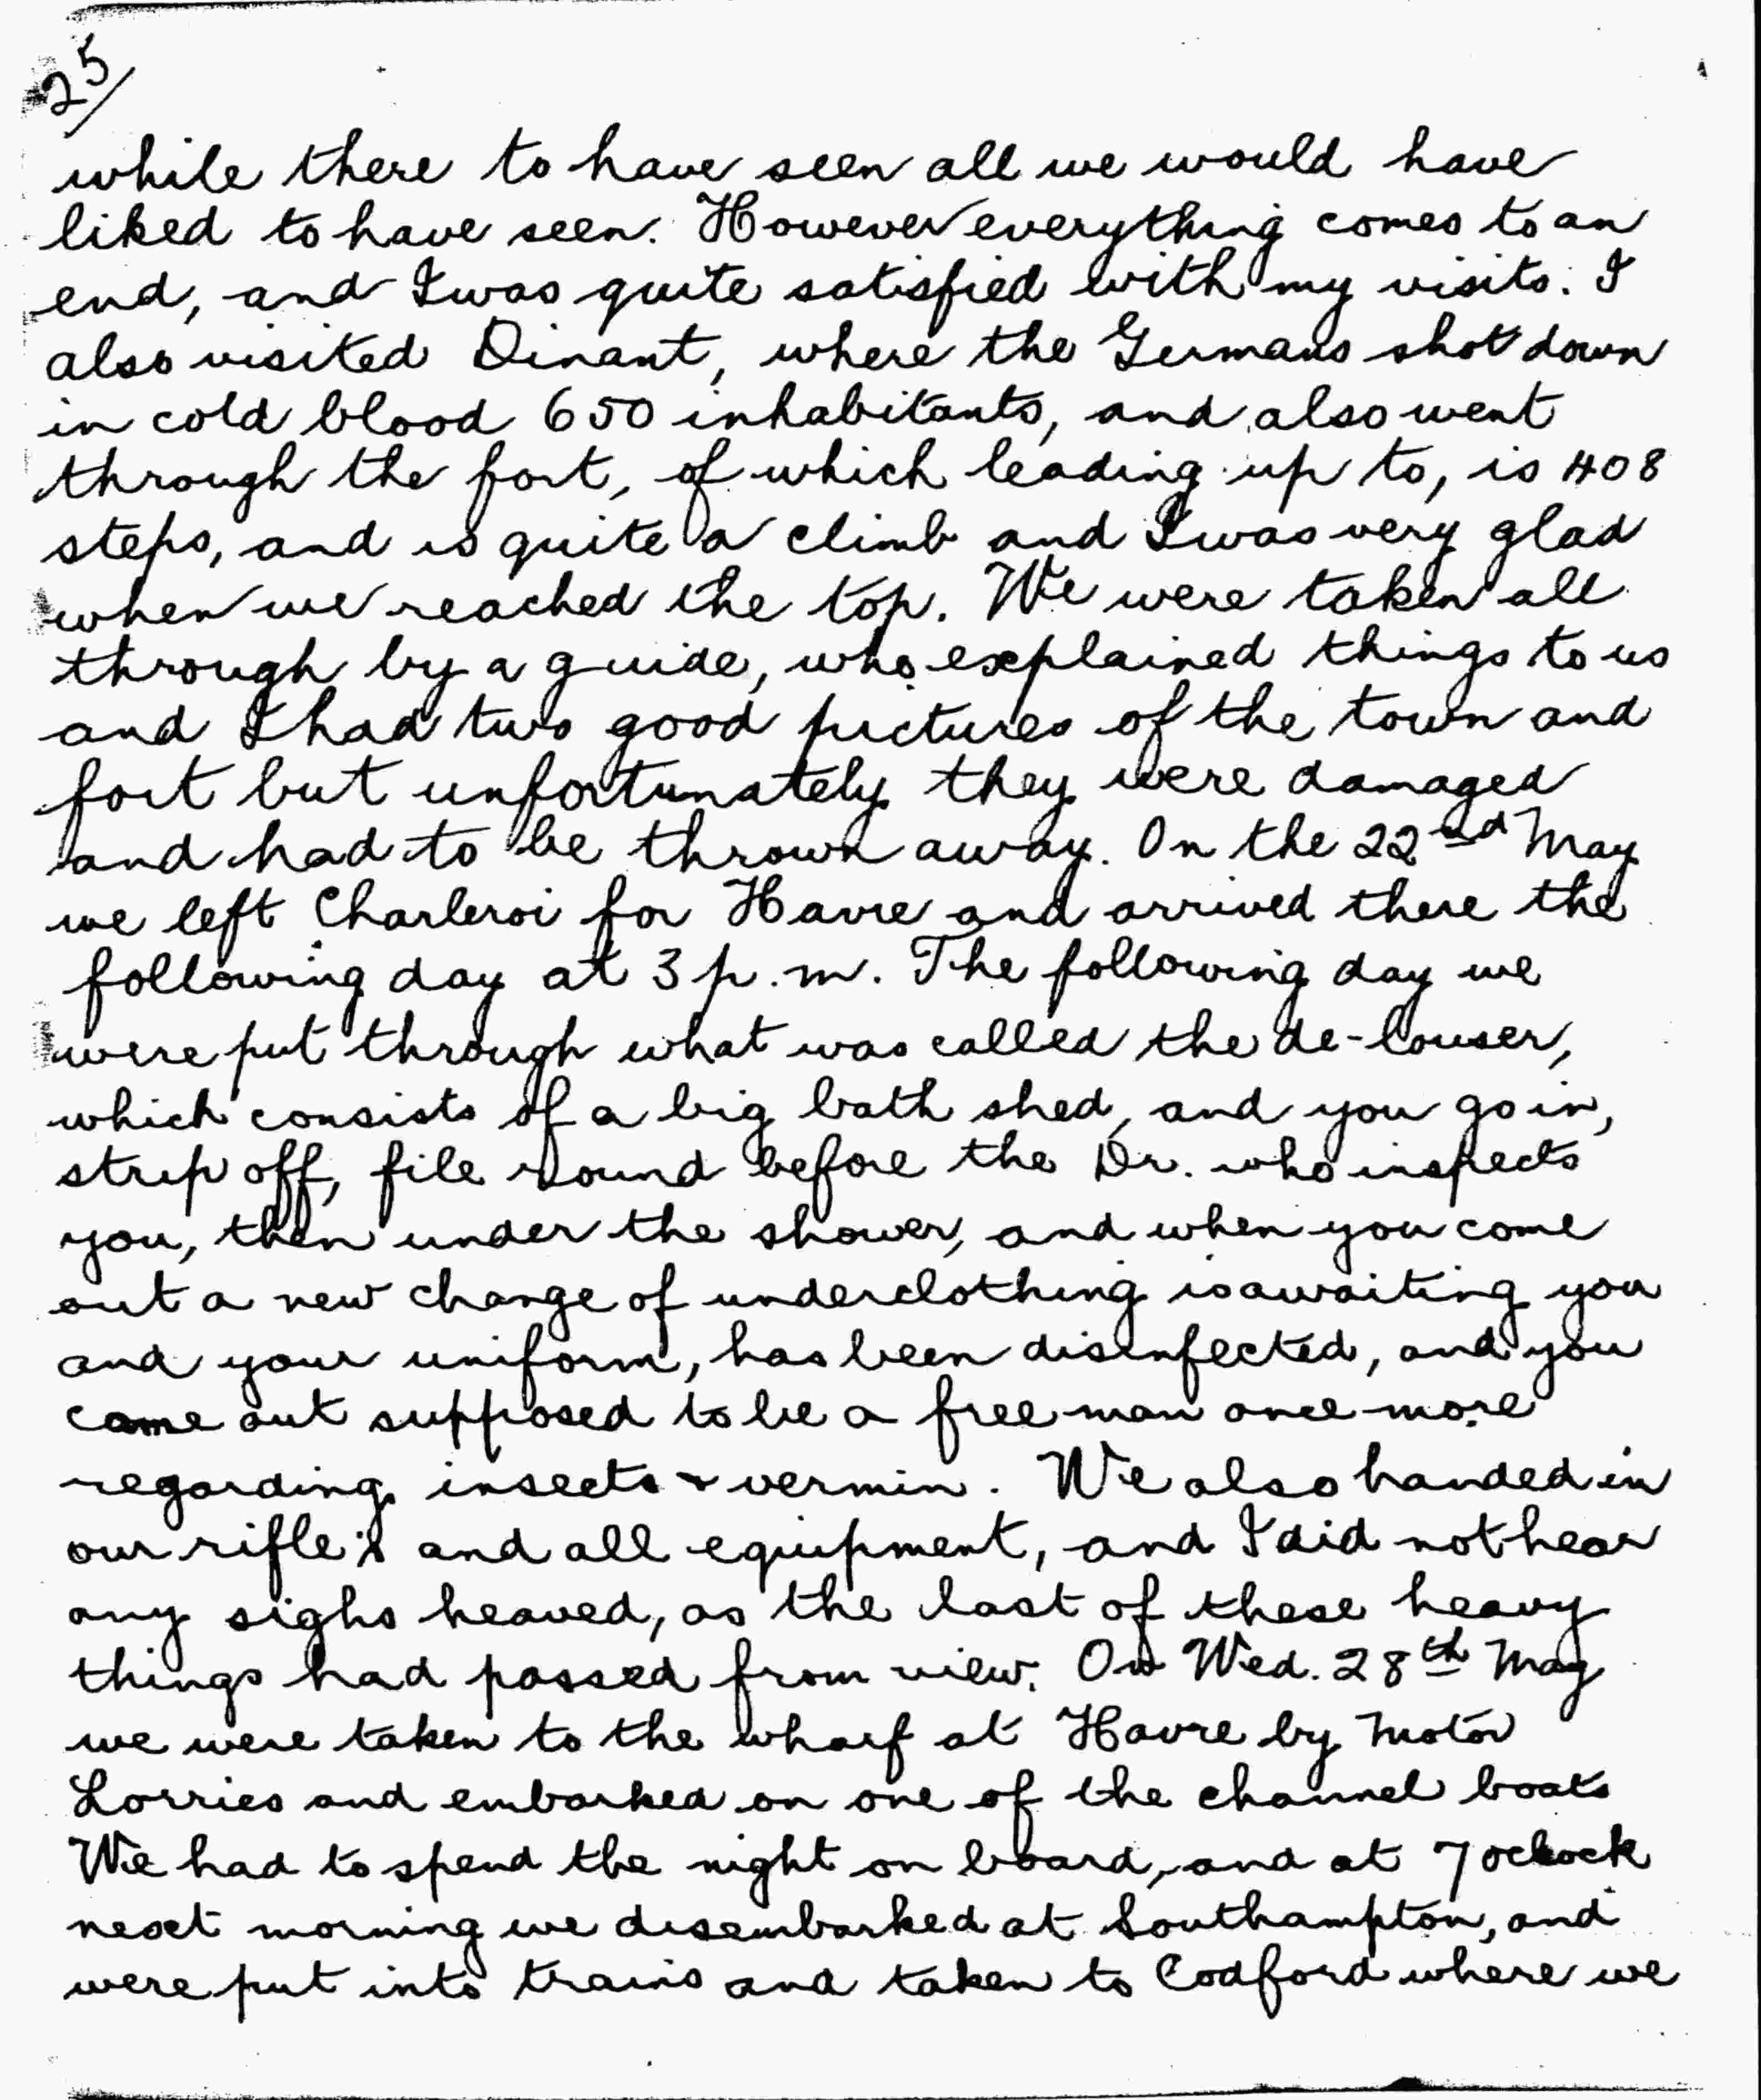 25/
while there to have seen all we would have
liked to have seen. However everything comes to an
end, and I was quite satisfied with my visits. I
also visited Dinant, where the Germans shot down
in cold blood 650 inhabitants, and also went
through the fort, of which leading up to, is 408
steps, and is quite a climb and I was very glad
when we reached the top. We were taken all
through by a guide, who explained things to us
and I had two good pictures of the town and
fort but unfortunately they were damaged
and had to be thrown away. On the 22nd May
we left Charleroi for Havre and arrived there the
following day at 3 p.m. The following day we
were put through what was called the de-louser,
which consists of a big bath shed, and you go in,
strip off, file round before the Dr. who inspects
you, then under the shower, and when you come
out a new change of underclothing is awaiting you
and your uniform, has been disinfected, and you
come out supposed to be a free man once more
regarding insects & vermin. We also handed in
our rifle's and all equipment, and I did not hear
any sighs heaved, as the last of these heavy
things had passed from view. On Wed. 28th May
we were taken to the wharf at Havre by Motor
Lorries and embarked on one of the channel boats
We had to spend the night on board, and at 7 oclock
next morning we disembarked at Southampton, and
were put into trains and taken to Codford where we